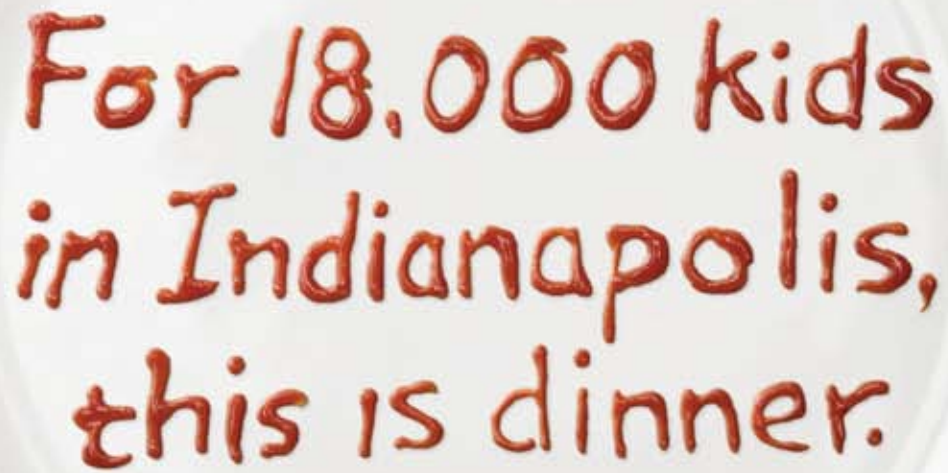 For 18,000 kids
in Indianapolis,
this is dinner.